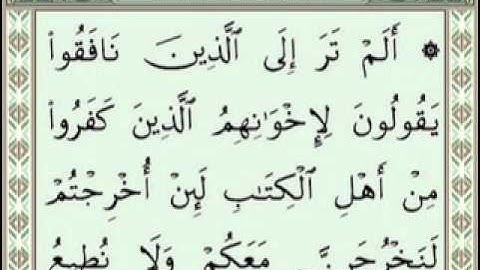 ۞ أَلَمْ تَرَ إِلَى ٱلَّذِينَ نَافَقُوا۟
يَقُولُونَ لِإِخْوَٰنِهِمُ ٱلَّذِينَ كَفَرُوا۟
مِنْ أَهْلِ ٱلْكِتَٰبِ لَئِنْ أُخْرِجْتُمْ
لَنَخْرُجَنَّ مَعَكُمْ وَلَا نُطِيعُ